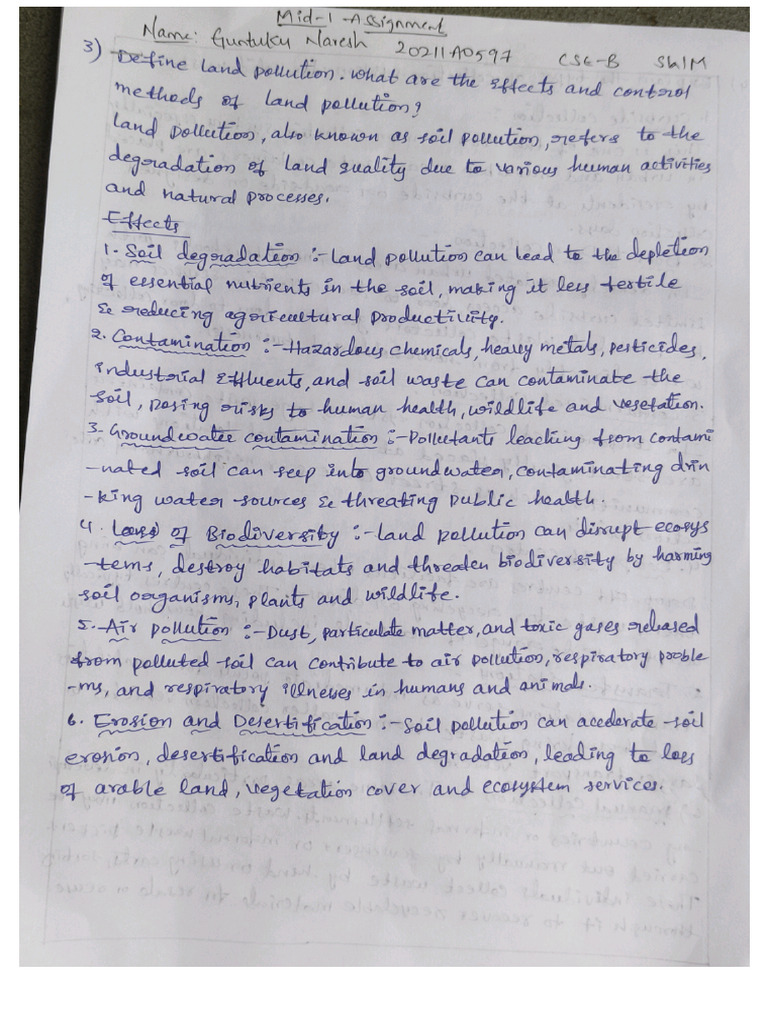 Mid-1 Assignment
Name: Guntuku Naresh 20211A0597 CSE-B SWM
3) Define land pollution. what are the effects and control
methods of land pollution?
land pollution, also known as soil pollution, refers to the
degradation of land quality due to various human activities
and natural processes.
Effects
1. Soil degradation :- Land pollution can lead to the depletion
of essential nutrients in the soil, making it less fertile
& reducing agricultural productivity.
2. Contamination :- Hazardous chemicals, heavy metals, pesticides,
industrial effluents, and soil waste can contaminate the
soil, posing risks to human health, wildlife and vegetation.
3. Groundwater contamination :- Pollutants leaching from contami
-nated soil can seep into groundwater, contaminating drin
-king water sources & threating public health.
4. Loss of Biodiversity :- land pollution can disrupt ecosys
-tems, destroy habitats and threaten biodiversity by harming
soil organisms, plants and wildlife.
5. Air pollution :- Dust, particulate matter, and toxic gases released
from polluted soil can contribute to air pollution, respiratory proble
-ms, and respiratory illnesses in humans and animals.
6. Erosion and Desertification :- Soil pollution can accelerate soil
erosion, desertification and land degradation, leading to loss
of arable land, vegetation cover and ecosystem services.